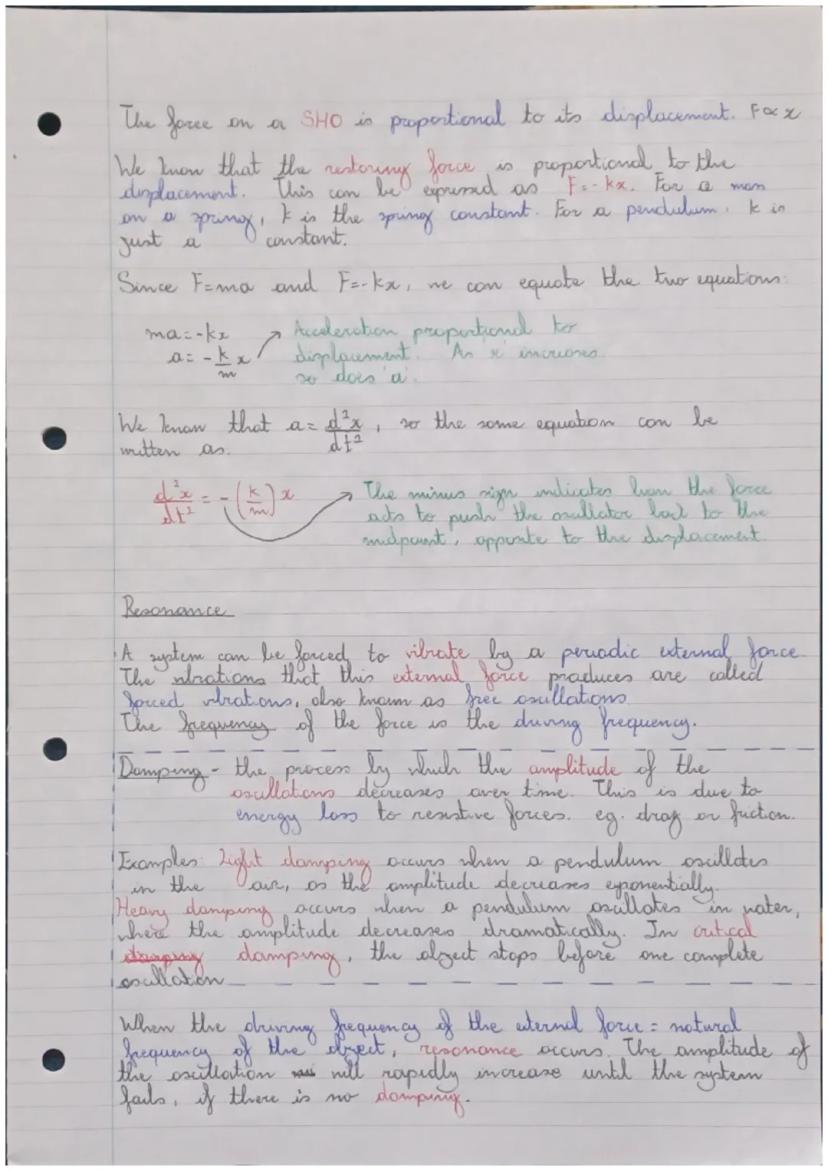 The force on a SHO is proportional to its displacement. F∝x
We know that the restoring force is proportional to the
displacement. This can be expressed as F=-kx. For a mass
on a spring, k is the spring constant. For a pendulum, k is
just a constant.
Since F=ma and F=-kx, we can equate the two equations:
ma=-kx → Acceleration proportional to
a=-k/m x displacement. As 'x' increases
so does 'a'.
We know that a = d²x/dt², so the same equation can be
written as.
d²x/dt² = -(k/m)x → The minus sign indicates how the force
acts to push the oscillator back to the
midpoint, opposite to the displacement.
Resonance
A system can be forced to vibrate by a periodic external force
The vibrations that this external force produces are called
forced vibrations, also known as free oscillations
The frequency of the force is the driving frequency.
Damping - the process by which the amplitude of the
oscillations decreases over time. This is due to
energy loss to resistive forces. eg. drag or friction.
Examples: Light damping occurs when a pendulum oscillates
in the air, as the amplitude decreases exponentially.
Heavy damping occurs when a pendulum oscillates in water,
where the amplitude decreases dramatically. In critical
damping damping, the object stops before one complete
oscillation
When the driving frequency of the external force = natural
frequency of the object, resonance occurs. The amplitude of
the oscillation will rapidly increase until the system
fails, if there is no damping.